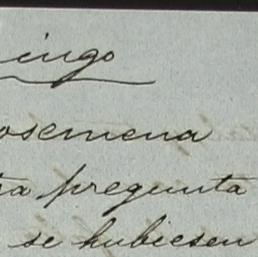 ingo
osemena
ra pregunta
se hubiesen